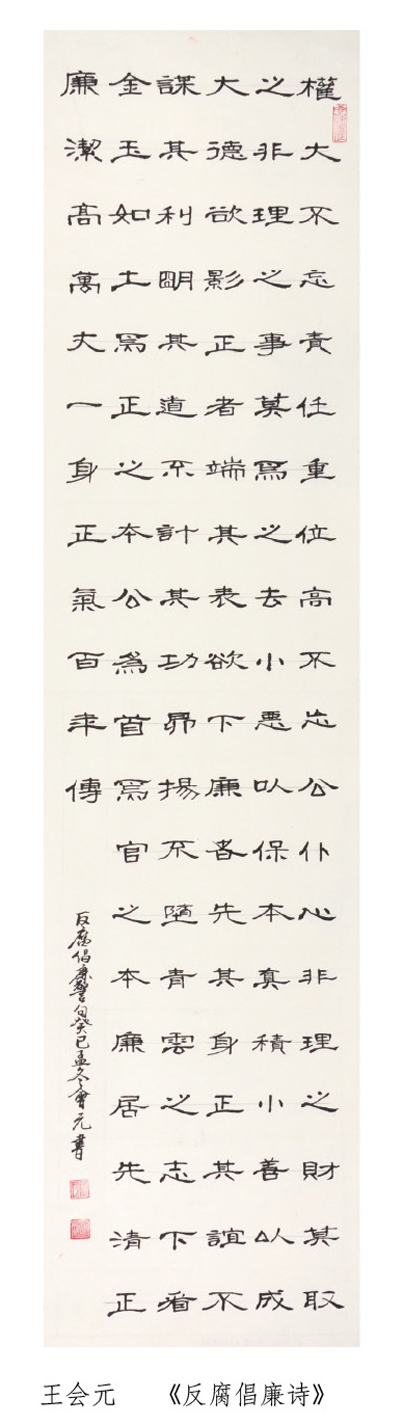 權大不忘責任重位高不忘公仆心非理之財莫取
之非理之事莫爲之去小悪以保本真積小善以成
大德欲影正者端其表欲下廉者先其身正其誼不
謀其利明其道不計其功昴揚不墮青雲之志下看
金玉如土爲正之本公爲首爲官之本廉居先清正
廉潔高萬丈一身正氣百年傳
反腐倡廉警句癸巳孟冬會元書
王会元 《反腐倡廉诗》